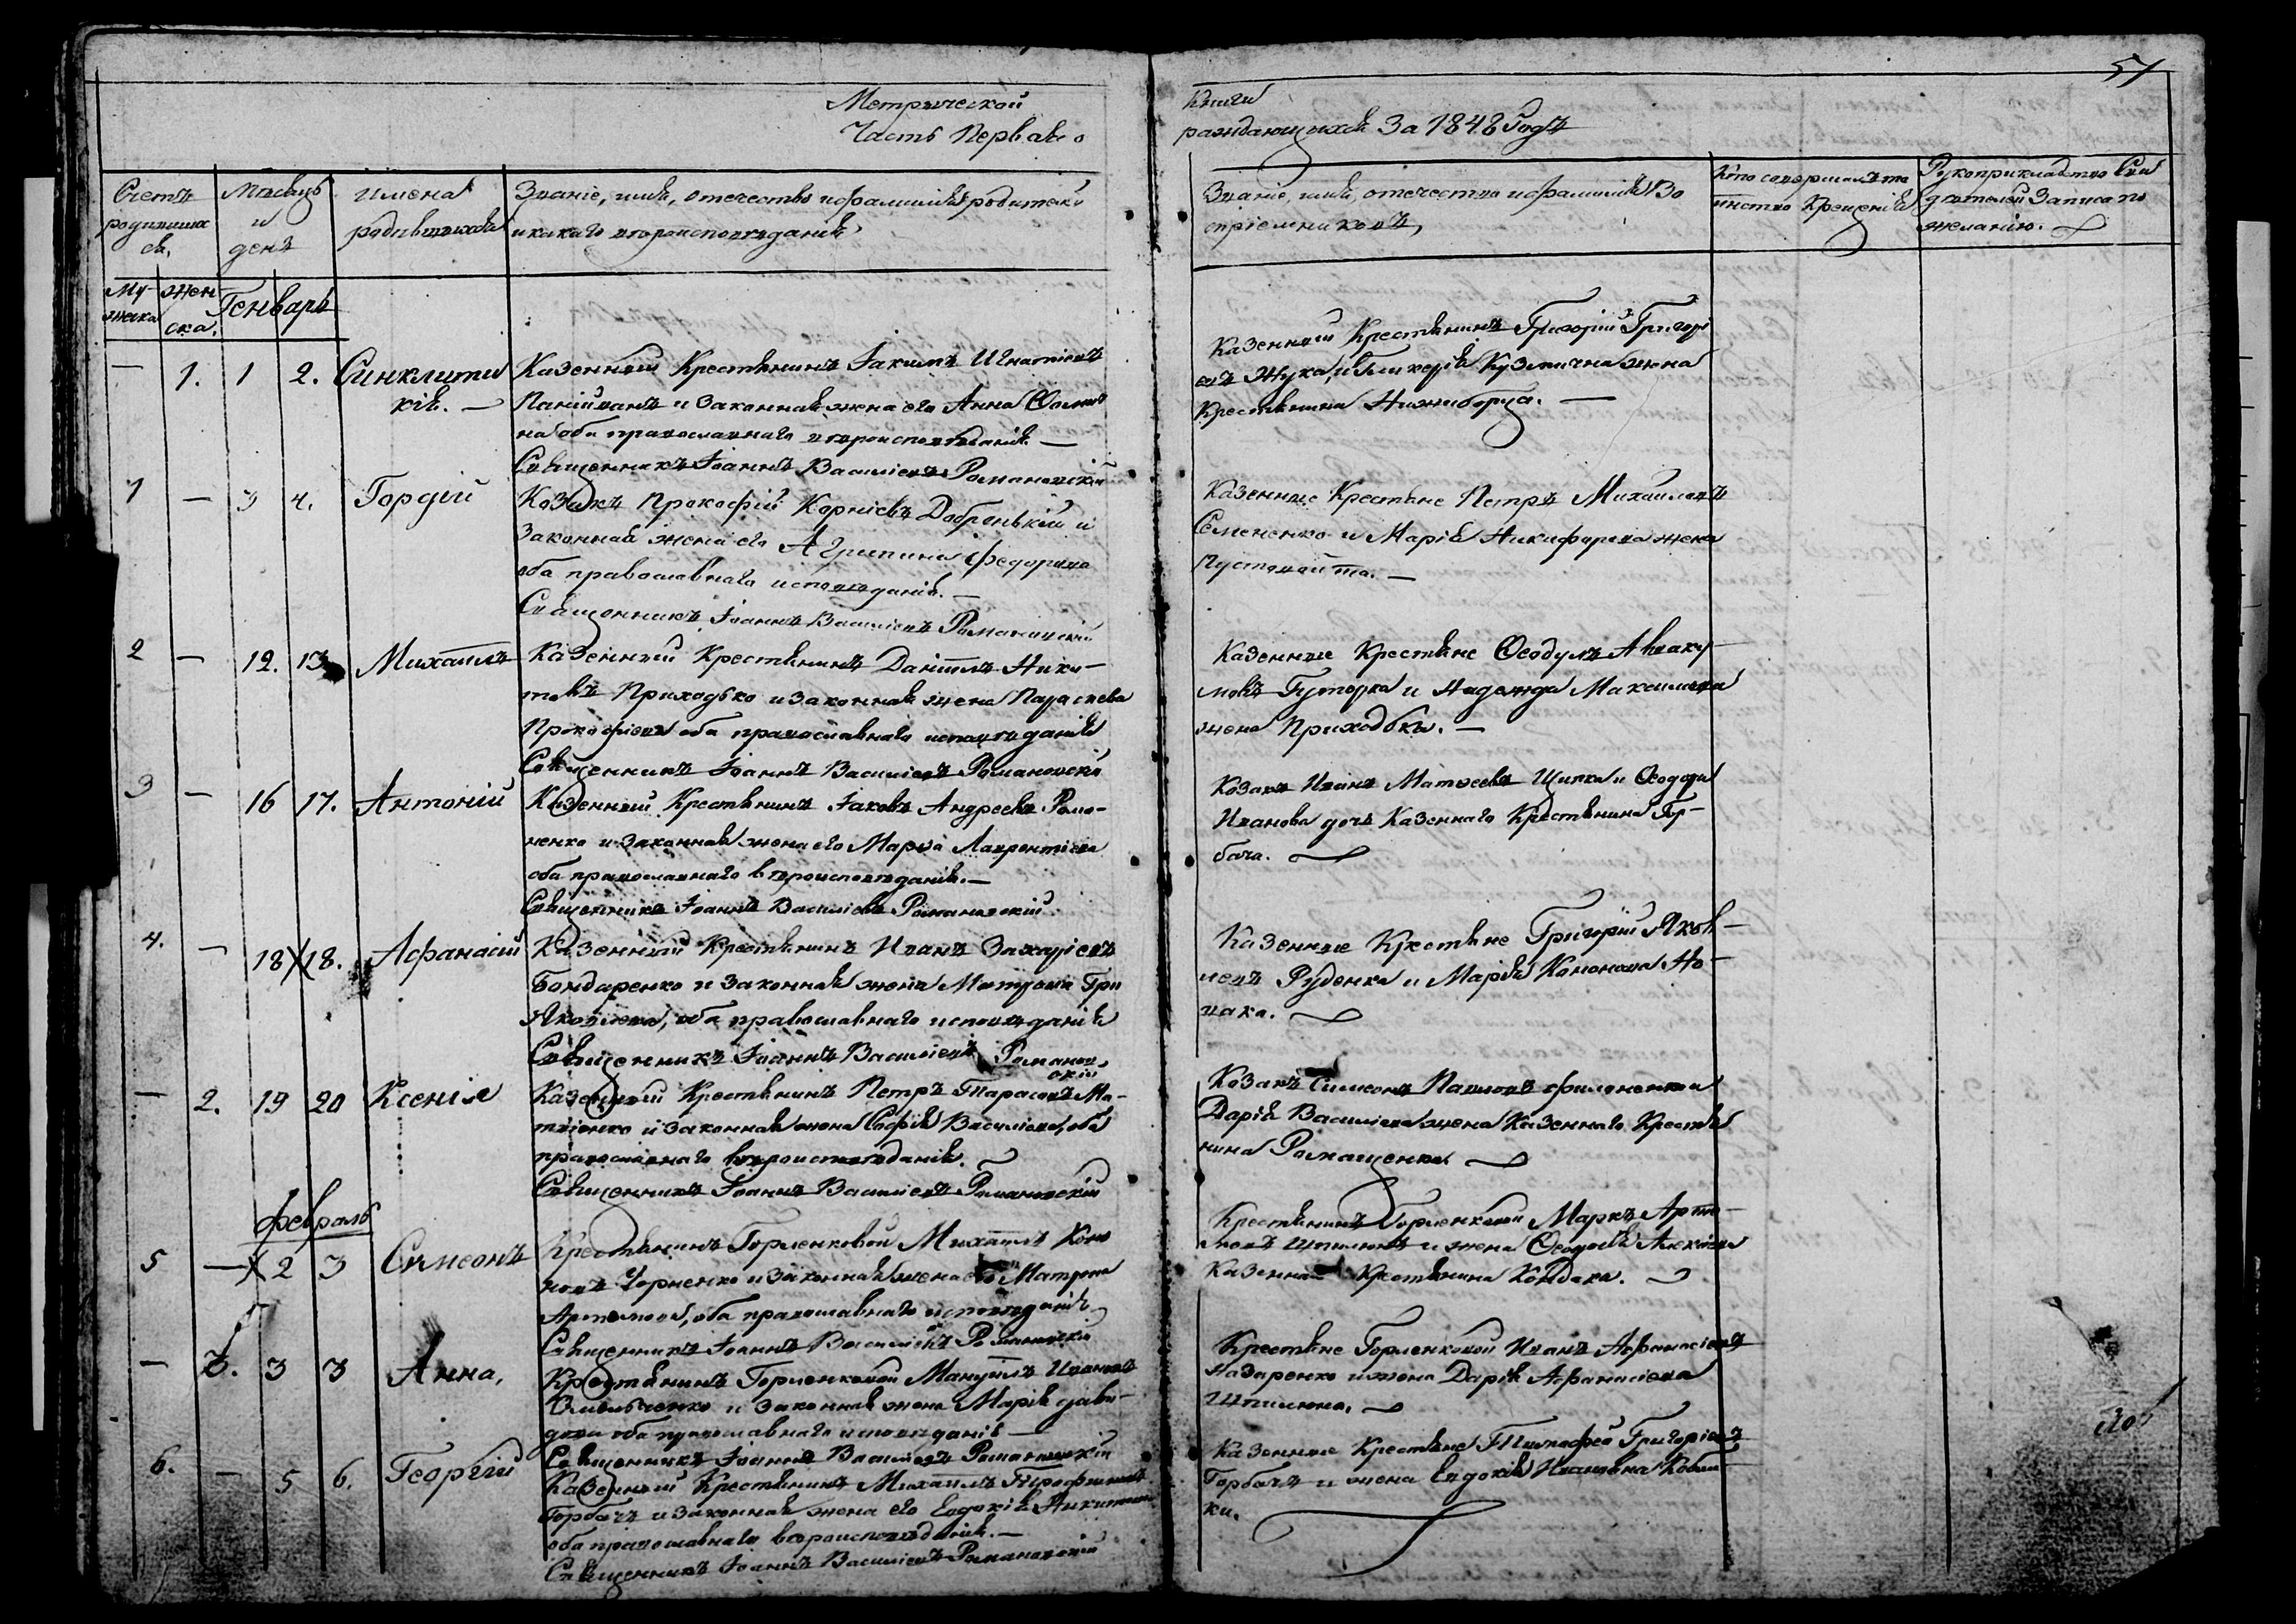 51
Метрической
Часть Первая о
Книги
раждающихся За 1848 Годъ
Счетъ
родивших
ся.
Мѣсяцъ
и
день
имена
родившихся
Званіе, имя, отечество и фамилія родителей
и какаго вѣроисповѣданія
Званіе, имя, отечество и фамилія Во
спріемниковъ,
Кто совершалъ та
инство Крещенія
Рукоприкладство Сви
дѣтелей Записа по
желанію.
Му-
жеска
жен
ска.
Генварь
— 1. 1 2. Синклити
кія. —
Казенный Крестьянинъ Іакимъ Игнатіевъ
и Законная жена его Анна
на оба православнаго вѣроисповѣданія —
Священникъ Іоаннъ Василіевъ Романовскій
Казенный Крестьянинъ Григорій Григорі
евъ Жука, и Гликерія Кузмична жена
Крестьянина Нижиборца. —
1 — 3 4. Гордій
Козакъ Прокофій Корніевъ Добренькій и
Законная жена его Агрипина Федорова
оба православнаго исповѣданія. —
Священникъ Іоаннъ Василіевъ Романовскій
Казенные Крестьяне Петръ Михаиловъ
Семененко и Марія Никифорова жена
Пустовойта. —
2 — 12. 13 Михаилъ
Казенный Крестьянинъ Даніилъ Ники-
товъ Приходько и законная жена Параскева
Прокофіева оба православнаго исповѣданія
Священникъ Іоаннъ Василіевъ Романовскій
Казенные Крестьяне Ѳеодулъ Авваку-
мовъ Гуторка и Надежда Максимова
жена Приходька. —
3 — 16 17. Антоній
Казенный Крестьянинъ Іаковъ Андреевъ Рома-
ненко и законная жена его Марѳа Лаврентіева
оба православнаго вѣроисповѣданія. —
Священникъ Іоаннъ Василіевъ Романовскій
Козакъ Иванъ Матѳеевъ Щипка и Ѳеодора
Иванова дочь Казеннаго Крестьянина Гор-
бача.
4. — 18 18. Афанасій
Казенный Крестьянинъ Иванъ Захаріевъ
Бондаренко и Законная жена Матрона
Яковлева, оба православнаго исповѣданія
Священникъ Іоаннъ Василіевъ Романов
скій
Казенные Крестьяне Григорій Яков-
левъ Руденка и Марія Кононова Но-
вака.
— 2. 19 20 Ксенія
Казенный Крестьянинъ Петръ Тарасовъ Ма-
твіенко и Законная жена Софія Василіева, оба
православнаго вѣроисповѣданія.
Священникъ Іоаннъ Василіевъ Романовскій
Козакъ Симеонъ Павловъ Филоненко и
Дарія Василіева жена Казеннаго Крестья
нина Ромащенка.
Февраль
5 — 2 3 Симеонъ
Крестьянинъ Горленковой Михаилъ Коно
новъ Черненко и Законная жена его Матрона
Артемова, оба православнаго исповѣданія
Священникъ Іоаннъ Василіевъ Романовскій
Крестьянинъ Горленковой Маркъ Арте-
мовъ и жена Ѳеодосія Алексіева
Казеннаго Крестьянина Кондака.
— 3. 3 3 Анна,
Крестьянинъ Горленковой Мануилъ Ивановъ
Омельченко и Законная жена Марія Дави-
дова оба православнаго исповѣданія —
Священникъ Іоаннъ Василіевъ Романовскій
Крестьяне Горленковой Иванъ Афанасіевъ
и жена Дарія Афанасіева
6. — 5 6. Георгій
Казенный Крестьянинъ Михаилъ
Горбачъ и законная жена его Евдокія Никитина
оба православнаго вѣроисповѣданія. —
Священникъ Іоаннъ Василіевъ Романовскій
Казенные Крестьяне Тимофей Григоріевъ
Горбачъ и жена Евдокія Ивановна
ки.